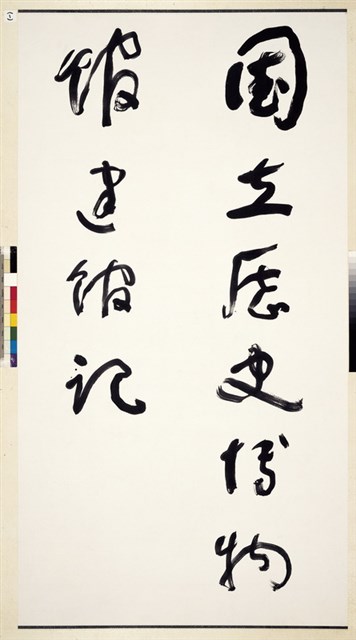 國立歷史博物
館建館記